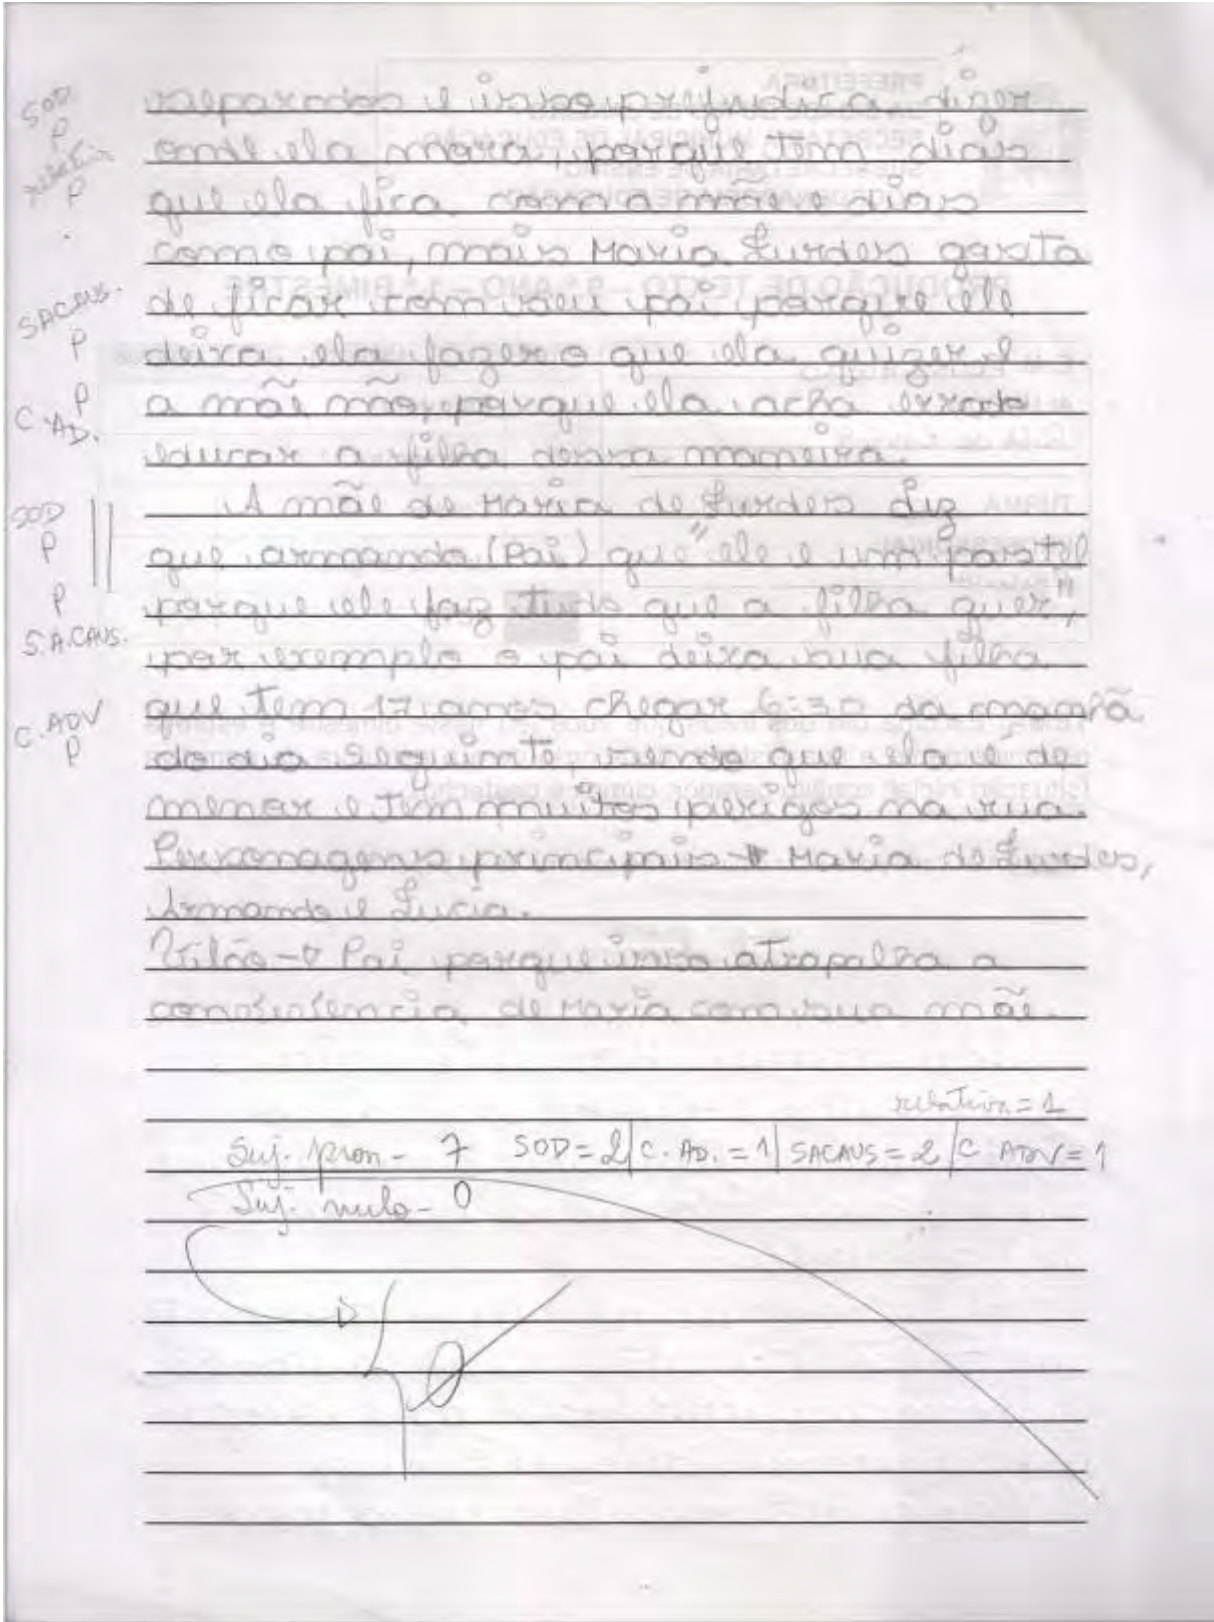 separados e isso prejudica dizer
onde ela mora, porque tem dias
que ela fica com a mãe e dias
com o pai, mais Maria Lurdes gosta
de ficar com seu pai porque ele
deixa ela fazer o que ela quizer e
a mãe não, porque ela acha errado
educar a filha dessa maneira.
A mãe de Maria de Lurdes diz
que armando (Pai) que "ele e um pastel
porque ele faz tudo que a filha quer",
por exemplo o pai deixa sua filha
que tem 17 anos chegar 6:30 da manhã
do dia seguinte, sendo que ela é de
menor e tem muitos perigos na rua.
Personagens principais → Maria de Lurdes,
Armando e Lucia.
Vilão → Pai porque isso atrapalha a
de Maria com sua mãe.
SOD
P
relativ
P
SACAUS.
P
P
C. AD.
SOD
P
P
S.A.CAUS.
C. ADV
P
relativa = 1
Suj. pron - 7 SOD = 2 | C. AD. = 1 | SACAUS = 2 | C ADV = 1
Suj. nulo - 0